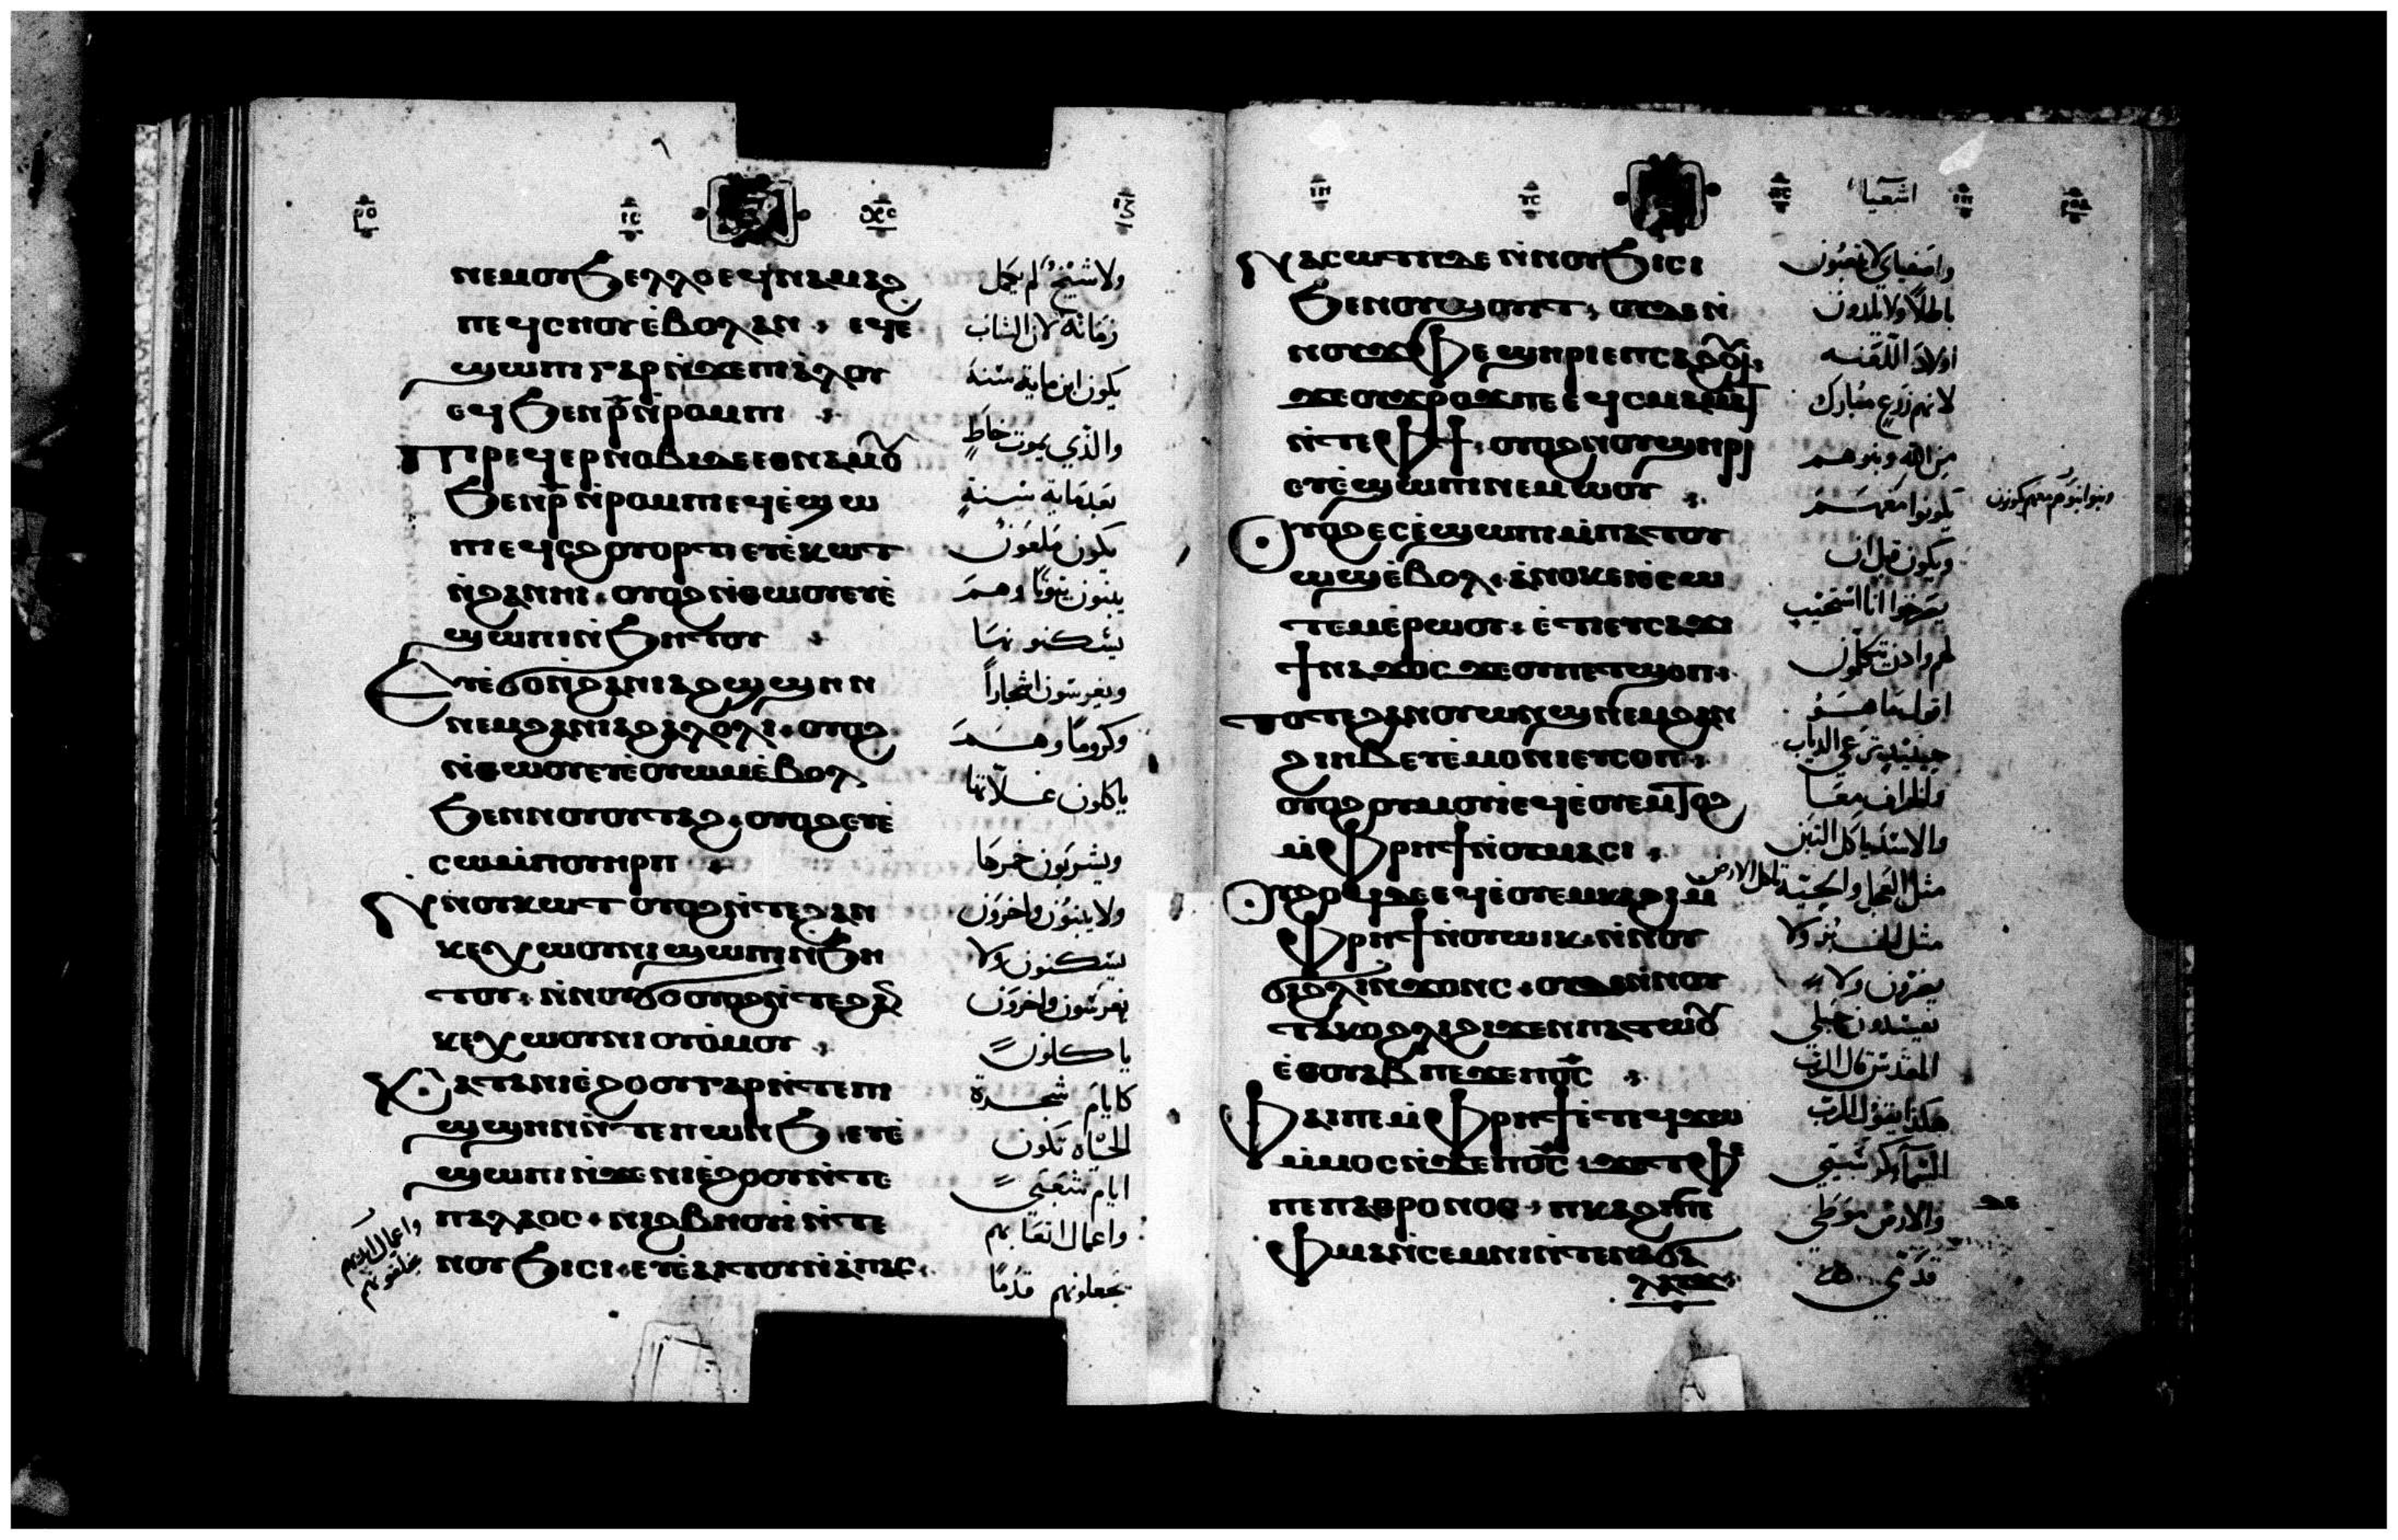 ⲛⲉⲙⲟⲩϧⲉⲗⲗⲟ ⲉϥⲛⲁⲙⲁϩ
ⲡⲉϥⲥⲏⲟⲩ ⲉ̀ⲃⲟⲗ ⲁⲛ · ⲉϥⲉ
ϣⲱⲡⲓ ⲅⲁⲣ ⲛ̀ϫⲉ ⲡⲓⲁ̀ⲗⲟⲩ
ⲉϥϧⲉⲛ ⲣ̄ ⲛ̀ⲣⲟⲙⲡⲓ
Ⲡⲓⲣⲉϥⲉⲣⲛⲟⲃⲓ ⲇⲉ ⲉⲑⲛⲁⲙⲟⲩ
ϧⲉⲛ ⲣ̄ ⲛ̀ⲣⲟⲙⲡⲓ ⲉϥⲉ̀ϣⲱ
ⲡⲓ ⲉϥⲥϩⲟⲩⲟⲣⲧ ⲉⲩⲉ̀ⲕⲱⲧ
ⲛ̀ϩⲁⲛⲏⲓ · ⲟⲩⲟϩ ⲛ̀ⲑⲱⲟⲩ ⲉⲩⲉ̀
ϣⲱⲡⲓ ⲛ̀ϧⲏⲧⲟⲩ
Ⲉⲩⲉ̀ϭⲟ ⲛ̀ϩⲁⲛⲓⲁϩϣϣⲏⲛ
ⲛⲉⲙ ϩⲁⲛⲓⲁϩⲁⲗⲟⲗⲓ · ⲟⲩⲟϩ
ⲛ̀ⲑⲱⲟⲩ ⲉⲩⲉ̀ⲟⲩⲱⲙ ⲉ̀ⲃⲟⲗ
ϧⲉⲛ ⲛⲟⲩⲟⲩⲧⲁϩ · ⲟⲩⲟϩ ⲉⲩⲉ̀
ⲥⲱ ⲙ̀ⲡⲟⲩⲏⲣⲡ
Ⲛ̀ⲛⲟⲩⲕⲱⲧ ⲟⲩⲟϩ ⲛ̀ⲧⲉ ϩⲁⲛ
ⲕⲉⲭⲱⲟⲩⲛⲓ ϣⲱⲡⲓ ⲛ̀ϧⲏ
ⲧⲟⲩ · ⲛ̀ⲛⲟⲩϭⲟ ⲟⲩⲟϩ ⲛ̀ⲧⲉ ϩⲁⲛ
ⲕⲉⲭⲱⲟⲩⲛⲓ ⲟⲩⲟⲙⲟⲩ
Ⲕⲁⲧⲁ ⲛⲓⲉ̀ϩⲟⲟⲩ ⲅⲁⲣ ⲛ̀ⲧⲉ ⲡⲓ
ϣϣⲏⲛ ⲛ̀ⲧⲉ ⲡⲱⲛϧ ⲉⲩⲉ̀
ϣⲱⲡⲓ ⲛ̀ϫⲉ ⲛⲓⲉ̀ϩⲟⲟⲩ ⲛ̀ⲧⲉ
ⲡⲁⲗⲁⲟⲥ · ⲛⲓϩⲃⲏⲟⲩⲓ̀ ⲛ̀ⲧⲉ
ⲛⲟⲩϧⲓⲥⲓ · ⲉⲩⲉ̀ⲁⲓⲧⲟⲩ ⲛ̀ⲁ̀ⲡⲁⲥ
ولا شيخ لم يكمل
زمانه لان الشاب
يكون ابن ماية سنة
والذي يموت خاطٍ
يكون ملعون
يبنون بيوتًا وهم
يسكنو بها
ويغرسون اشجاراً
وكرومًا وهم
ياكلون غلاتها
ويشربون خمرها
ولا يبنون واخرون
يسكنون ولا
يغرسون واخرون
ياكلون
كايام شجرة
الحياه تكون
ايام شعبي
واعمال اتعابهم
يجعلونهم قدمًا
اشعيا
Ⲛⲁⲥⲱⲧⲡ ⲇⲉ ⲛ̀ⲛⲟⲩϧⲓⲥⲓ
ϧⲉⲛ ⲟⲩϣⲟⲩⲓⲧ · ⲟⲩⲇⲉ ⲛ̀
ⲛⲟⲩϫⲫⲉ ϣⲏⲣⲓ ⲉⲡⲥⲁϩⲟⲩⲓ̀
ϫⲉ ⲟⲩϫⲣⲟϫ ⲡⲉ ⲉϥⲥⲙⲁⲣⲱⲟⲩⲧ
ⲛ̀ⲧⲉ ⲫϯ · ⲟⲩⲟϩ ⲛⲟⲩϣⲏⲣⲓ
ⲉⲩⲉ̀ϣⲱⲡⲓ ⲛⲉⲙⲱⲟⲩ
Ⲟⲩⲟϩ ⲉⲥⲉ̀ϣⲱⲡⲓ ⲙ̀ⲡⲁⲧⲟⲩ
ϣϣ ⲉ̀ⲃⲟⲗ · ⲁ̀ⲛⲟⲕ ⲉⲓⲉ̀ⲥⲱ
ⲧⲉⲙ ⲉ̀ⲣⲱⲟⲩ · ⲉ̀ⲧⲓ ⲉⲩⲥⲁϫⲓ
ϯⲛⲁϫⲟⲥ ϫⲉ ⲟⲩ ⲡⲉⲧϣⲟⲡ
Ⲧⲟⲧⲉ ϩⲁⲛⲟⲩⲱⲛϣ ⲛⲉⲙ ϩⲁⲛ
ϩⲓⲏⲃ ⲉⲩⲉ̀ⲙⲟⲛⲓ ⲉⲩⲥⲟⲡ
ⲟⲩⲟϩ ⲟⲩⲙⲟⲩⲓ̀ ⲉϥⲉ̀ⲟⲩⲉⲙ ⲧⲟϩ
ⲙ̀ⲫⲣⲏϯ ⲛ̀ⲟⲩⲙⲁⲥⲓ
Ⲟⲩϩⲟϥ ⲇⲉ ⲉϥⲉ̀ⲟⲩⲉⲙ ⲕⲁϩⲓ ⲙ̀
ⲫⲣⲏϯ ⲛ̀ⲟⲩⲱⲓⲕ · ⲛ̀ⲛⲟⲩ
ϭⲓ ⲛ̀ϫⲟⲛⲥ · ⲟⲩⲇⲉ ⲛ̀ⲛⲟⲩ
ⲧⲁⲕⲟ ϩⲗⲓ ϩⲓϫⲉⲛ ⲡⲁⲧⲱⲟⲩ
ⲉ̀ⲑⲟⲩⲁⲃ ⲡⲉϫⲉ ⲡⲟ̅ⲥ̅
Ⲫⲁⲓ ⲡⲉ ⲙ̀ⲫⲣⲏϯ ⲉ̀ⲧⲉϥϫⲱ
ⲙ̀ⲙⲟⲥ ⲛ̀ϫⲉ ⲡⲟ̅ⲥ̅ · ϫⲉ ⲧⲫⲉ
ⲡⲉ ⲡⲁⲑⲣⲟⲛⲟⲥ · ⲡⲕⲁϩⲓ ⲡⲉ
ⲫⲙⲁⲛ̀ⲥⲉⲙⲛⲓ ⲛ̀ⲧⲉ ⲛⲁϭⲁ
ⲗⲁⲩϫ
واصفياي لا يتعبون
باطلاً ولا يلدون
اولاد اللعنه
لانهم زرع مبارك
من الله وبنوهم
يكونوا معهم
ويكون قبل ان
يصرخوا انا استجيب
لهم واذ يتكلمون
اقول ما هو
حينيذ ترعى الدياب
والخراف معًا
والاسد ياكل التبن
مثل العجل والحية تاكل الارض
مثل الخبز ولا
يضرون ولا
يفسدون جبلي
المقدس قال الرب
هكذا يقول الرب
السما كرسيي
والارض موطي